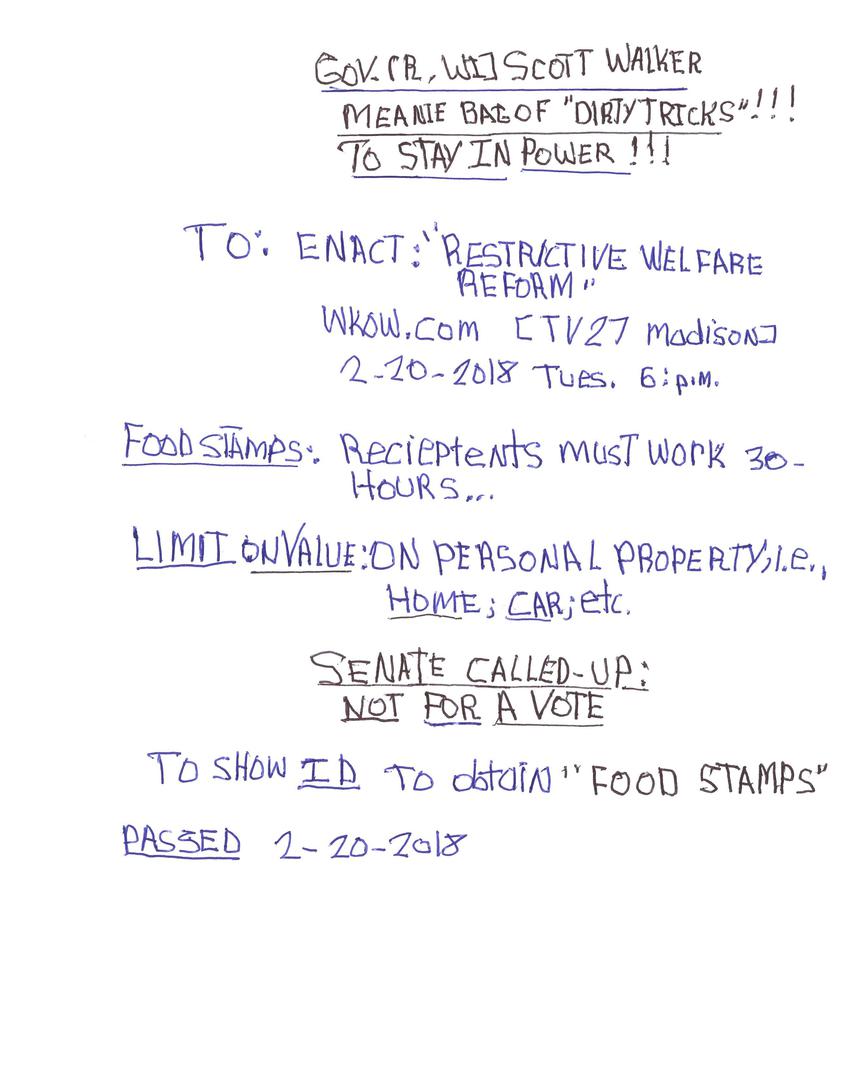 GOV. (R, WI) SCOTT WALKER
MEANIE BAG OF "DIRTY TRICKS"!!!
TO STAY IN POWER !!!
TO: ENACT: "RESTRICTIVE WELFARE
REFORM"
WKOW.com [TV27 Madison]
2-20-2018 TUES. 6:p.M.
FOOD STAMPS: Recieptents must work 30-
HOURS...
LIMIT ON VALUE: ON PERSONAL PROPERTY; i.e.,
HOME; CAR; etc.
SENATE CALLED-UP:
NOT FOR A VOTE
TO SHOW ID TO obtain "FOOD STAMPS"
PASSED 2-20-2018